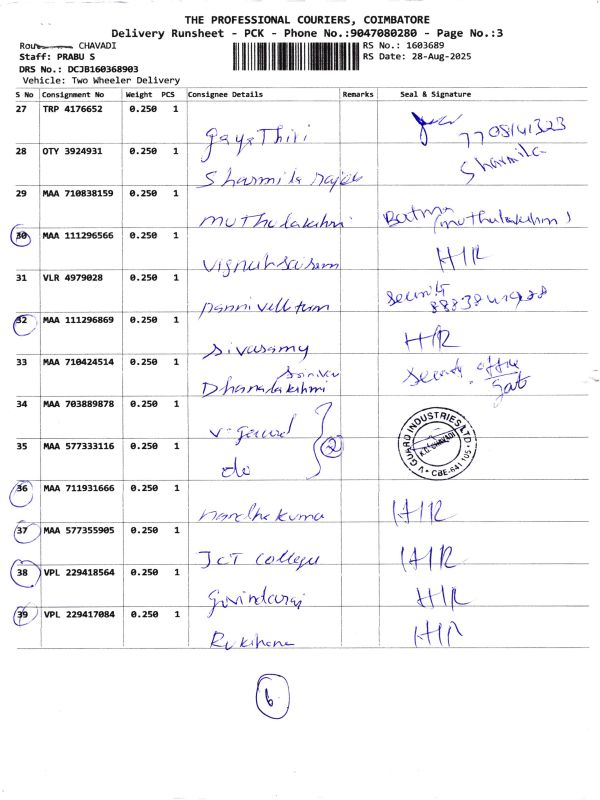 THE PROFESSIONAL COURIERS, COIMBATORE
Delivery Runsheet - PCK - Phone No.:9047080280 - Page No.:3
CHAVADI
RS No.: 1603689
Staff: PRABU S
RS Date: 28-Aug-2025
DRS No.: DCJB160368903
Vehicle: Two Wheeler Delivery
S No Consignment No Weight PCS Consignee Details Remarks Seal & Signature
27 TRP 4176652 0.250 1
gayaThiri 7708141323
28 OTY 3924931 0.250 1
Sharmila rajee Sharmila
29 MAA 710838159 0.250 1
muthulakshmi (muthulakshmi)
30 MAA 111296566 0.250 1
H/R
31 VLR 4979028 0.250 1
Security
32 MAA 111296869 0.250 1
Sivasamy H/R
33 MAA 710424514 0.250 1
Dhanalakshmi Security office
Gate
34 MAA 703889878 0.250 1
V-gaurd
35 MAA 577333116 1
0.250
do 2
V-GUARD INDUSTRIES LTD
K.G. CHAVADI
CBE-641 105
36 MAA 711931666 0.250 1
nandha kuma H/R
37 MAA 577355905 0.250 1
JCT College H/R
38 VPL 229418564 0.250 1
Govindaraj H/R
39 VPL 229417084 0.250 1
H/R
6